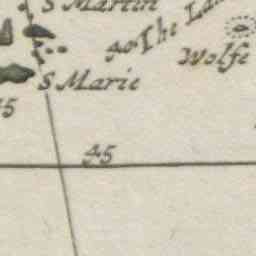 S Martin
40 The Lan
Wolfe
S Marie
45
45